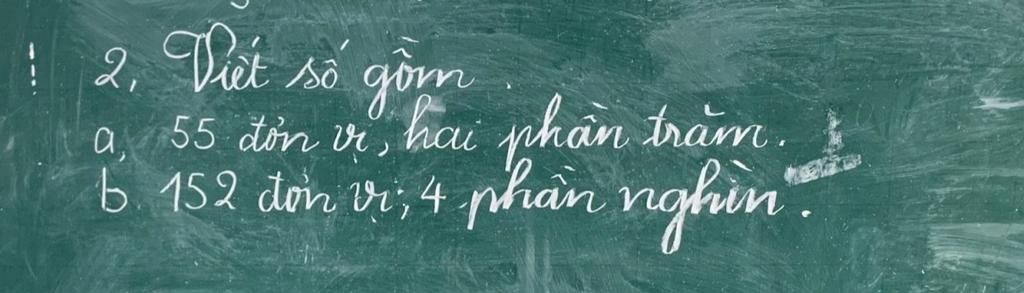 2, Viết số gồm.
a, 55 đơn vị, hai phần trăm.
b. 152 đơn vị; 4 phần nghìn.